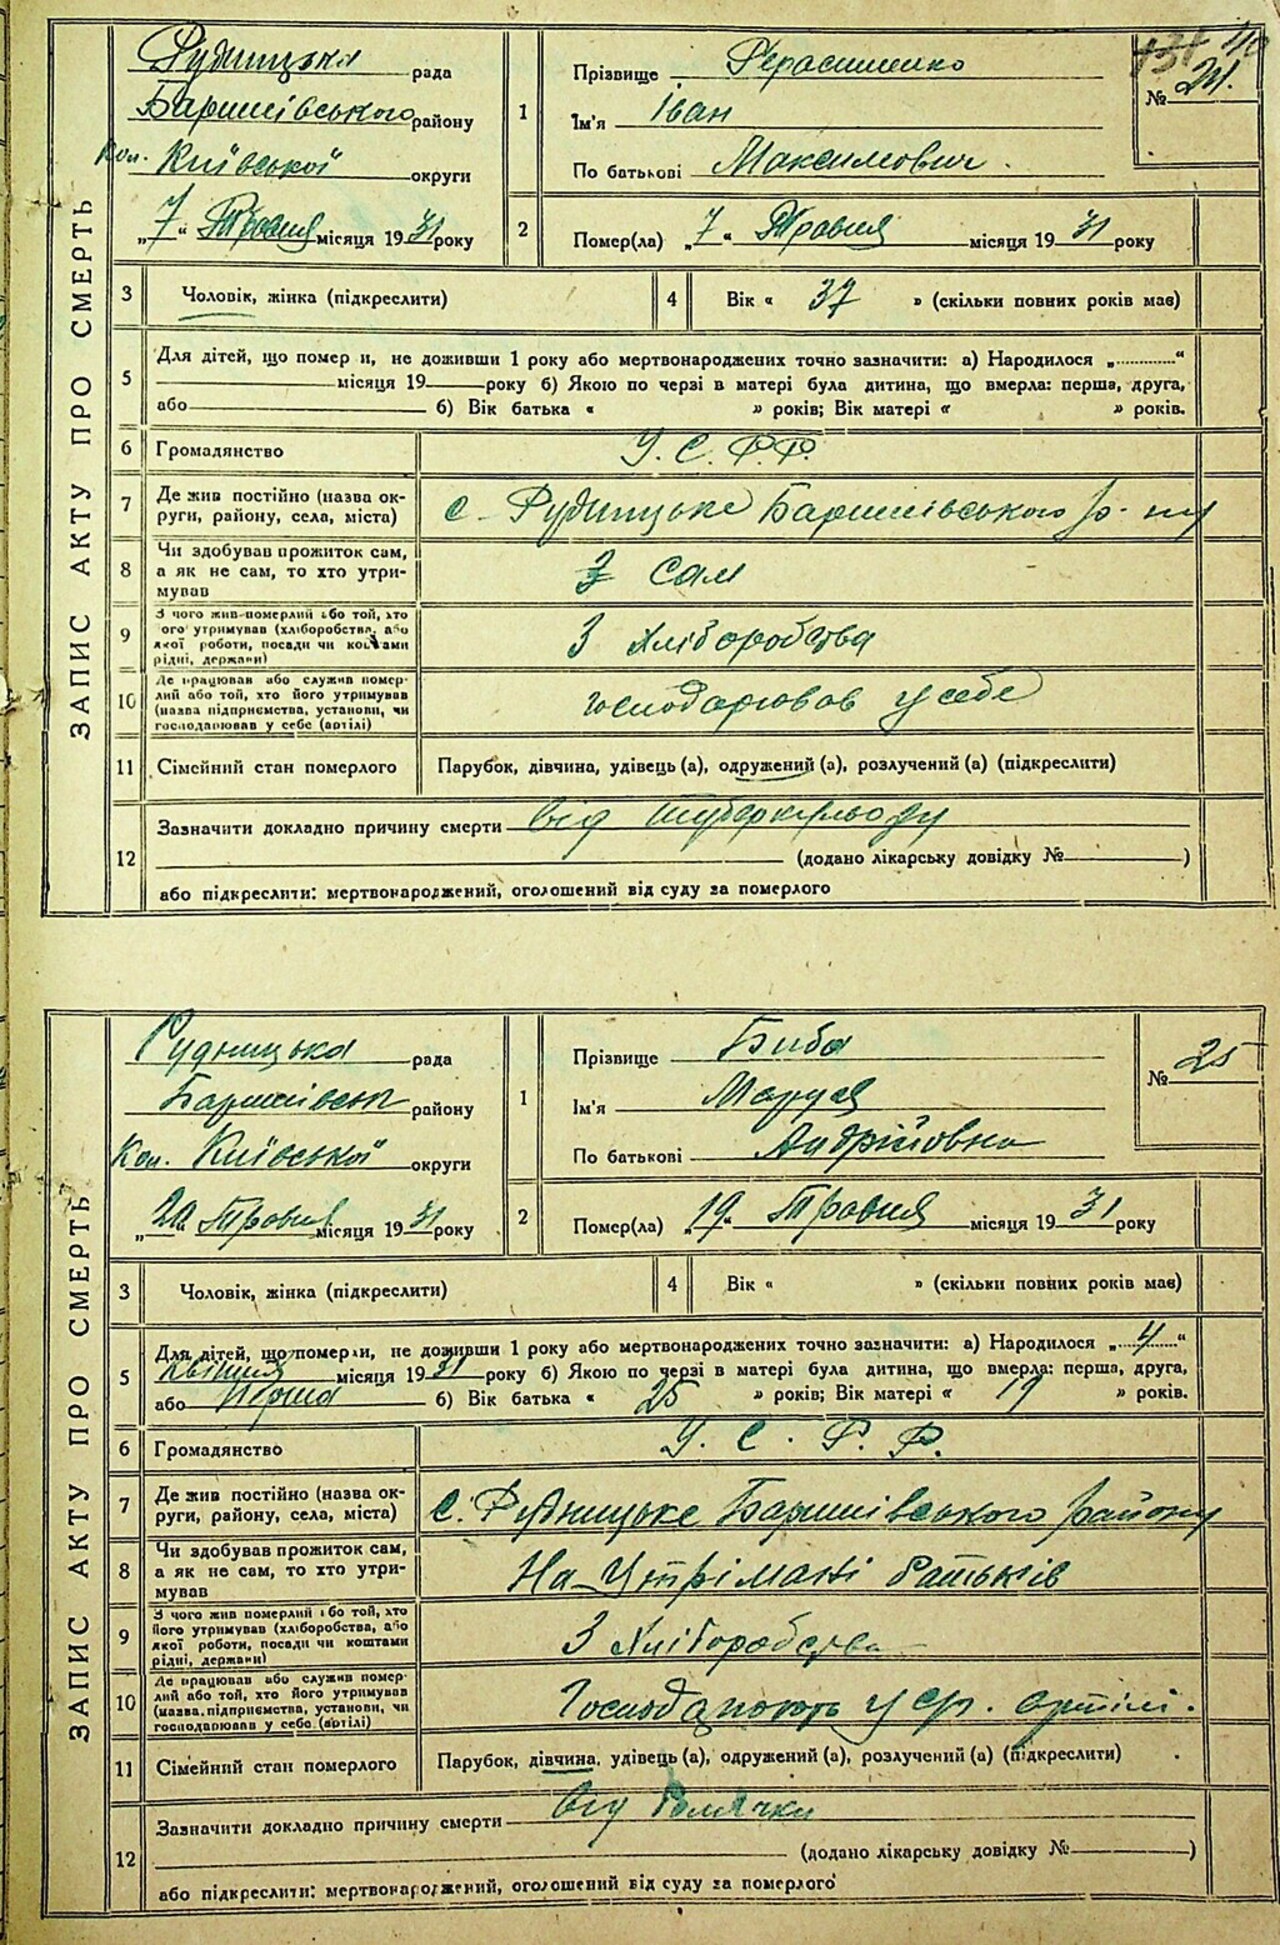 ЗАПИС АКТУ ПРО СМЕРТЬ
Рудницька рада
Баришівського району
Кол. Київської округи
„7“ Травня місяця 1931 року
1
Прізвище Герасименко
Ім'я Іван
По батькові Максимович.
№ 24.
2
Помер(ла) „7“ Травня місяця 1931 року
3 Чоловік, жінка (підкреслити)
4 Вік « 37 » (скільки повних років має)
5 Для дітей, що помер и, не доживши 1 року або мертвонароджених точно зазначити: а) Народилося „............“
місяця 19 року б) Якою по черзі в матері була дитина, що вмерла: перша, друга,
або б) Вік батька « » років; Вік матері « » років.
6 Громадянство У. С. Р. Р.
7 Де жив постійно (назва ок-
руги, району, села, міста) с. Рудницьке Баришівського р-ну
8 Чи здобував прожиток сам,
а як не сам, то хто утри-
мував
сам
9 З чого жив померлий або той, хто
ого утримував (хліборобства, або
якої роботи, посади чи коштами
рідні, держави)
З Хліборобства
10 Де працював або служив помер-
лий або той, хто його утримував
(назва підприємства, установи, чи
господарював у себе (артілі)
господарював у себе
11 Сімейний стан померлого Парубок, дівчина, удівець (а), одружений (а), розлучений (а) (підкреслити)
12 Зазначити докладно причину смерти від туберкульозу
(додано лікарську довідку № )
або підкреслити: мертвонароджений, оголошений від суду за померлого
ЗАПИС АКТУ ПРО СМЕРТЬ
Рудницька рада
Баришівськ району
Кол. Київської округи
„20 Травня місяця 1931 року
1
Прізвище Биба
Ім'я Маруся
По батькові Андрійовна
№ 25
2
Помер(ла) „19“ Травня місяця 1931 року
3 Чоловік, жінка (підкреслити)
4 Вік « » (скільки повних років має)
5 Для дітей, що померли, не доживши 1 року або мертвонароджених точно зазначити: а) Народилося „4“
Квітня місяця 1931 року б) Якою по черзі в матері була дитина, що вмерла: перша, друга,
або Перша б) Вік батька « 25 » років; Вік матері « 19 » років.
6 Громадянство У. С. Р. Р.
7 Де жив постійно (назва ок-
руги, району, села, міста) с. Рудницьке Баришівського району
8 Чи здобував прожиток сам,
а як не сам, то хто утри-
мував
На Утрімані батьків
9 З чого жив померлий або той, хто
його утримував (хліборобства, або
якої роботи, посади чи коштами
рідні, держави)
З Хліборобства
10 Де працював або служив помер-
лий або той, хто його утримував
(назва підприємства, установи, чи
господарював у себе (артілі)
Господарюють у артілі.
11 Сімейний стан померлого Парубок, дівчина, удівець (а), одружений (а), розлучений (а) (підкреслити)
12 Зазначити докладно причину смерти від
(додано лікарську довідку № )
або підкреслити: мертвонароджений, оголошений від суду за померлого